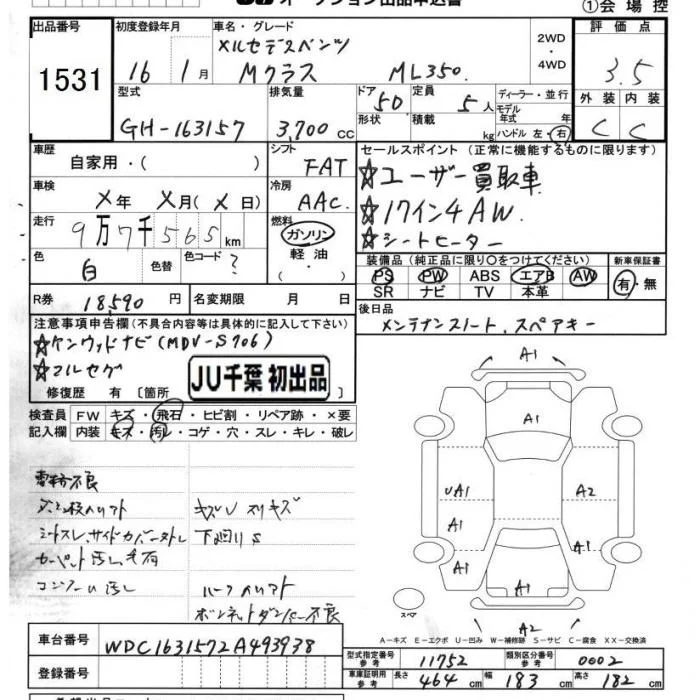 オークション出品申込書
①会場控
出品番号
1531
初度登録年月
16 1月
車名・グレード
メルセデスベンツ
Mクラス ML350
2WD
・
4WD
評価点
3.5
外装 内装
C C
型式
GH-163157
排気量
3,700 cc
ドア 5D
形状
定員 5人
積載 kg
ディーラー・並行
モデル年式 年
ハンドル 左・右
車歴
自家用・( )
シフト
FAT
車検
X年 X月(X日)
冷房
AAC
走行
9万7千565km
燃料
ガソリン
軽油
・
( )
色
白
色替
色コード
?
セールスポイント(正常に機能するものに限ります)
☆ユーザー買取車
☆17インチAW.
☆シートヒーター
装備品(純正品に限り○をつけてください)
PS PW ABS エアB AW
SR ナビ TV 本革
新車保証書
有・無
R券 18590円
名変期限 月 日
後日品
メンテナンスノート、スペアキー
注意事項申告欄(不具合内容等は具体的に記入して下さい)
☆ケンウッドナビ(MDV-S706)
☆フルセグ
修復歴 有 [箇所
JU千葉 初出品
検査員
記入欄
FW キズ・飛石・ヒビ割・リペア跡・×要
内装 キズ・汚レ・コゲ・穴・スレ・キレ・破レ
キズU スリキズ
シートスレ、サイドカバー
下回りS
カーペット汚し
コンソール汚し
ボンネットダンパー不良
A1
A1
A1
UA1
A2
A1
A1
A1
A1
A2
スペア
A-キズ E-エクボ U-凹み W-補修跡 S-サビ C-腐食 XX-交換済
車台番号
WDC1631572A493938
登録番号
型式指定番号
参考
11752
類別区分番号
参考
0002
車庫証明用
参考
長さ 464cm
幅 183cm
高さ 182cm